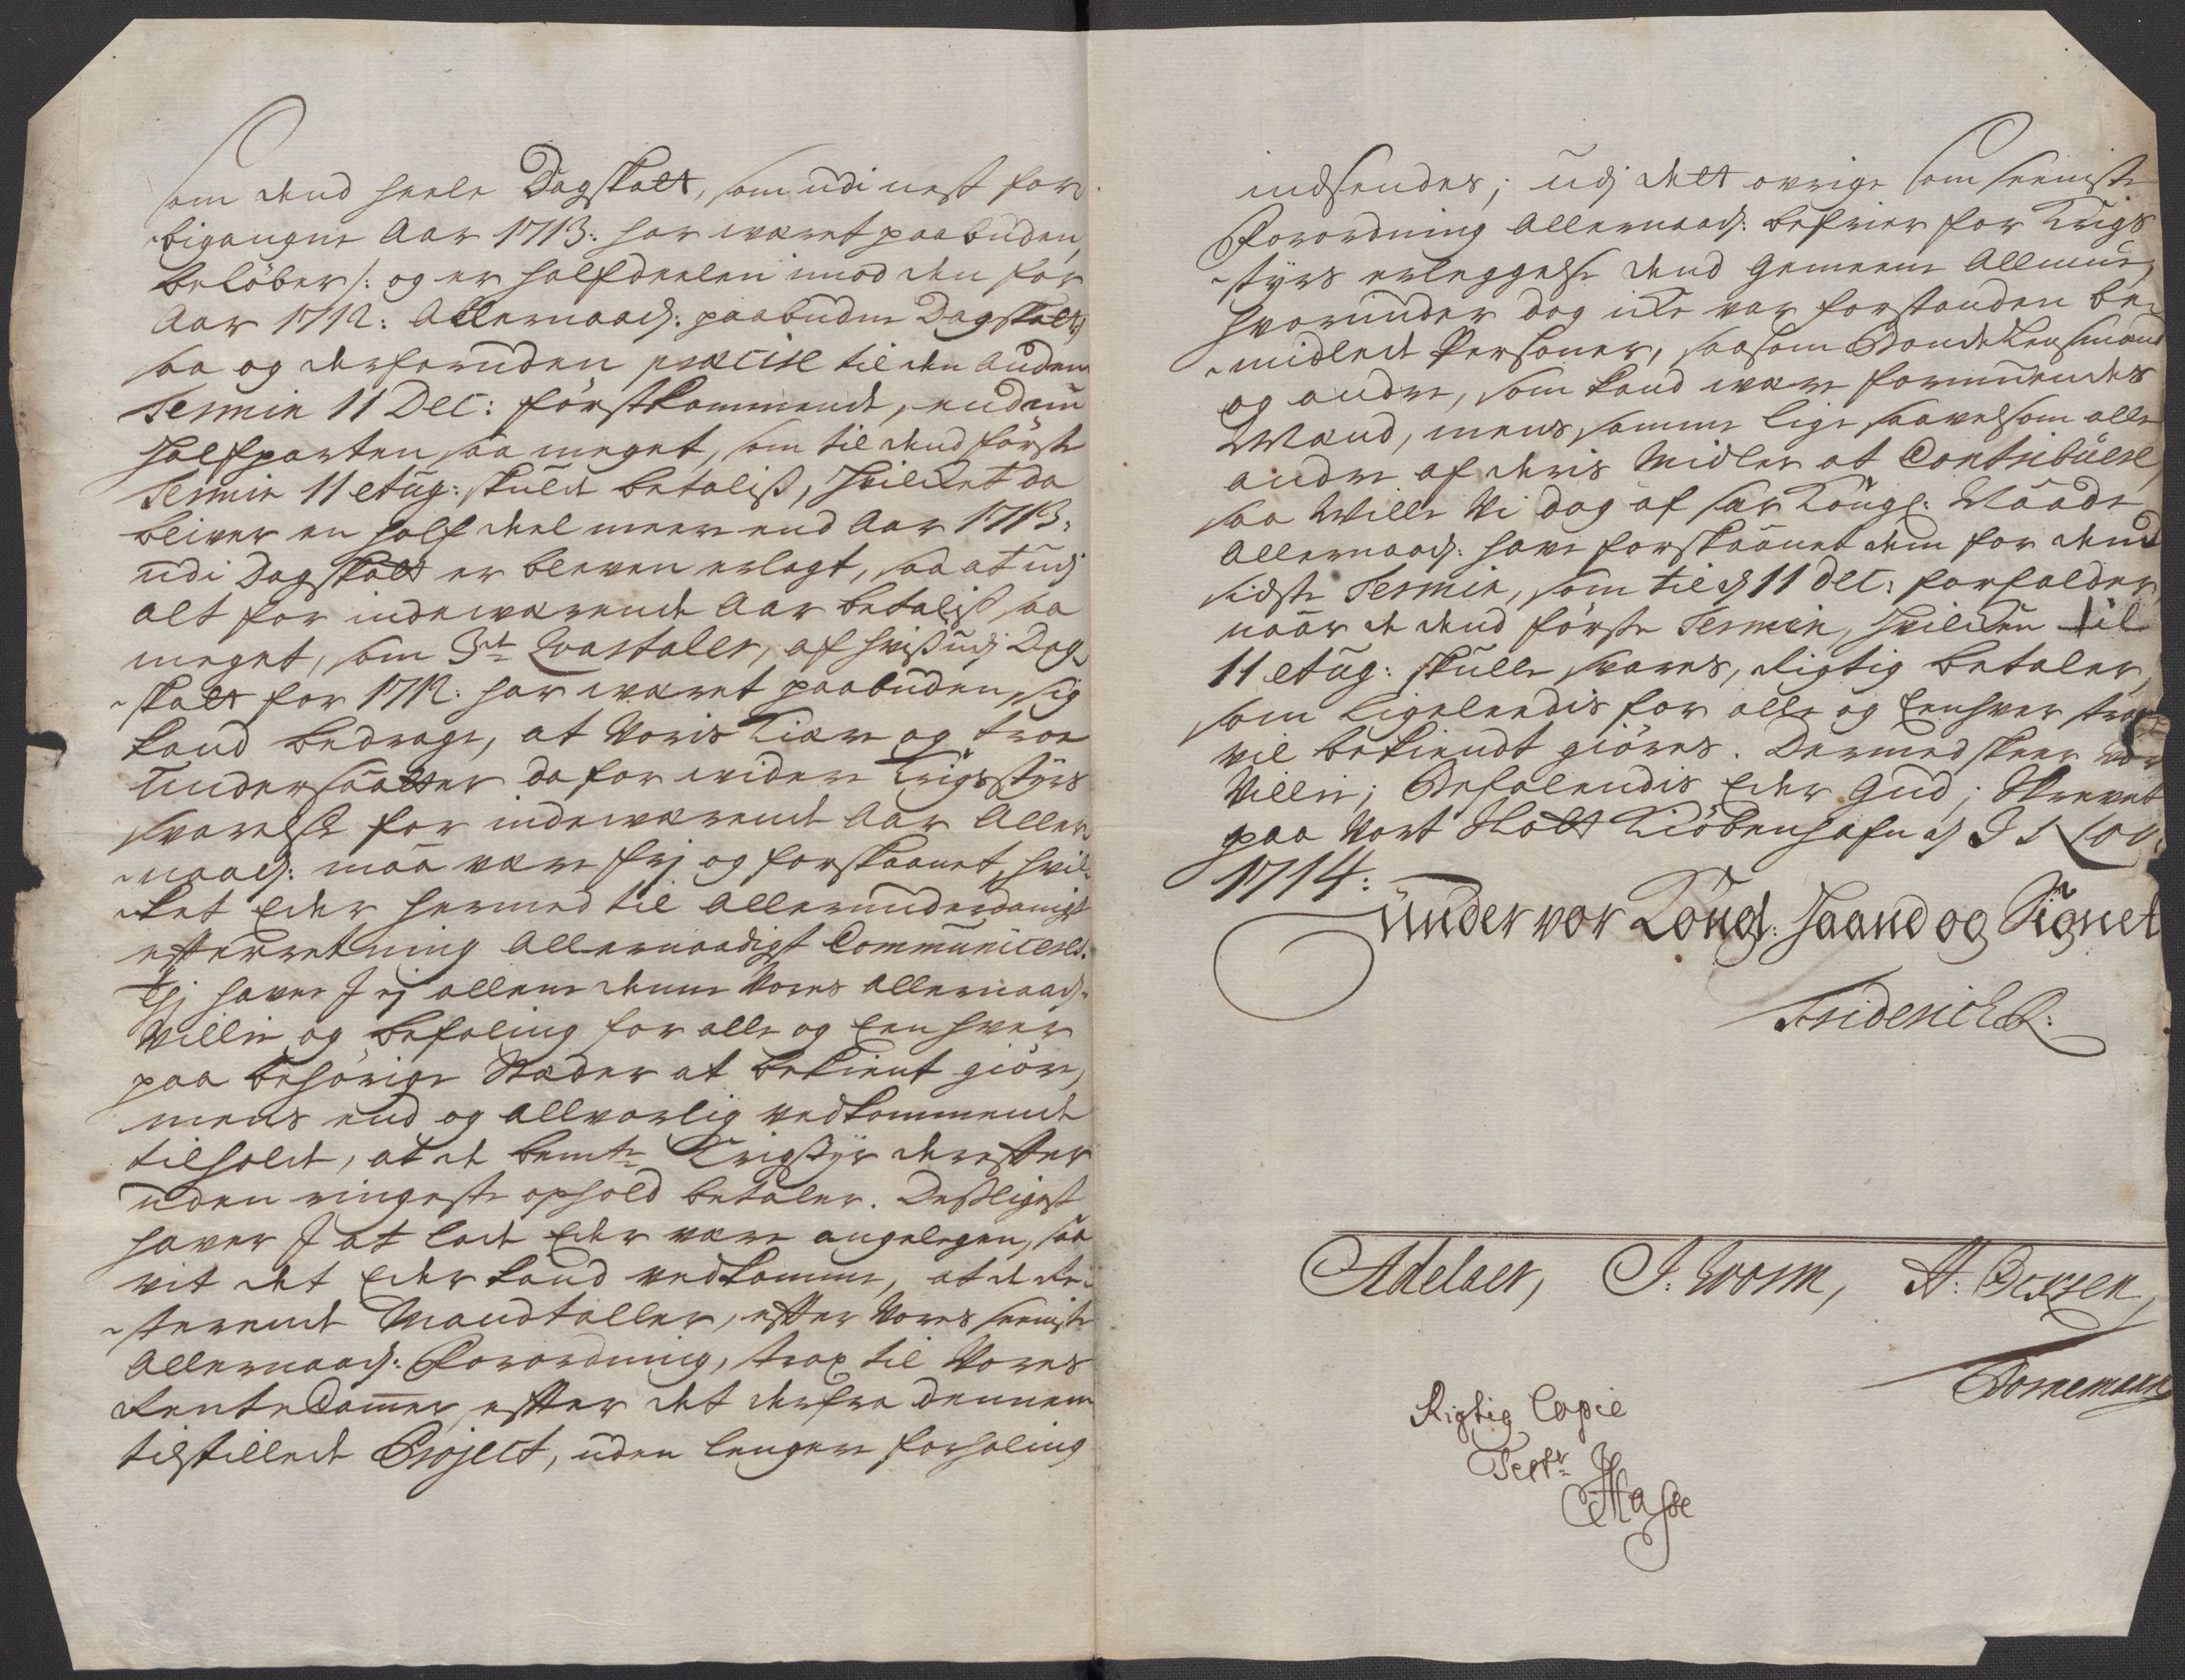 som dend heele Dagskatt, som udi nest for-
bigangne Aar 1713: har wæret paabuden,
beløber /: og er halfdeelen imod den for
Aar 1712: Allernaad: paabudne Dagskatt,
saa og derforuden præcise til den Anden
Termin 11 Dec: førstkommende, endnu
halfparten saa meget, som til dend første
Termin 11 Aug: skulde betalis, hvilcket da
bliver en half deel meere end Aar 1713:
udi Dagskatt er bleven erlagt, saa at udj
alt for indewærende Aar betalis saa
meget, som 3de Qvartaler, af hvis udj Dag-
skatt for 1712: har wæret paabuden, sig
kand bedrage, at Voris Kiære og troe
Undersaatter da for widere Krigsstyrs
svarelse for indewærende Aar Aller-
naad: maa være frj og forskaanet, hvil-
cket Eder hermed til Allerunderdanigst
efterretning Allernaadigst Communiceres.
Thj haver I ej allene denne Vores allernaad:
Villie og befaling for alle og Eenhver
paa behørige Stæder at bekient giøre,
mens end og allvorlig vedkommende
tilholde, at de bemte Krigstyr derefter
uden ringeste ophold betaler. Desligest
haver I at lade Eder være angelegen, saa
vit det Eder kand vedkomme, at de Re-
sterende Mandtaller, efter Vores seeniste
Allernaad: Forordning, strax til Vores
RenteCammer efter det derfra dennem
tilstillede Project, uden lengere forhaling
indsendes; udj dett øvrige som seeniste
Forordning Allernaad: befrier for Krigs-
styrs erleggelse dend Gemeene Allmue,
hvorunder dog icke var forstanden be-
midlede Persohner, saasom Bonde Lensmænd
og andre, som kand være formuendes
Mænd, mens samme lige saavelsom alle
andre af deris Midler at Contribuere,
saa Wille Vi dog af sær Kongl: Naade
Allernaad: have forskaanet dem for dend
sidste Termin, som til d 11 Dec: forfalder
naar de dend første Termin, hvilcken til
11 Aug: skulle svares, rigtig betaler,
som ligeleedis for alle og Eenhver strax
vil bekiendt giøres. Dermed skeer vor
Villie; Befalendis Eder Gud; Skrevet
paa Vort Slott Kiøbenhafn d
1714:
Under vor Kongl: Haand og Signet
Friderich R:
Adelaer, J: Worm,
Bornemann
Rigtig Copie
Test: